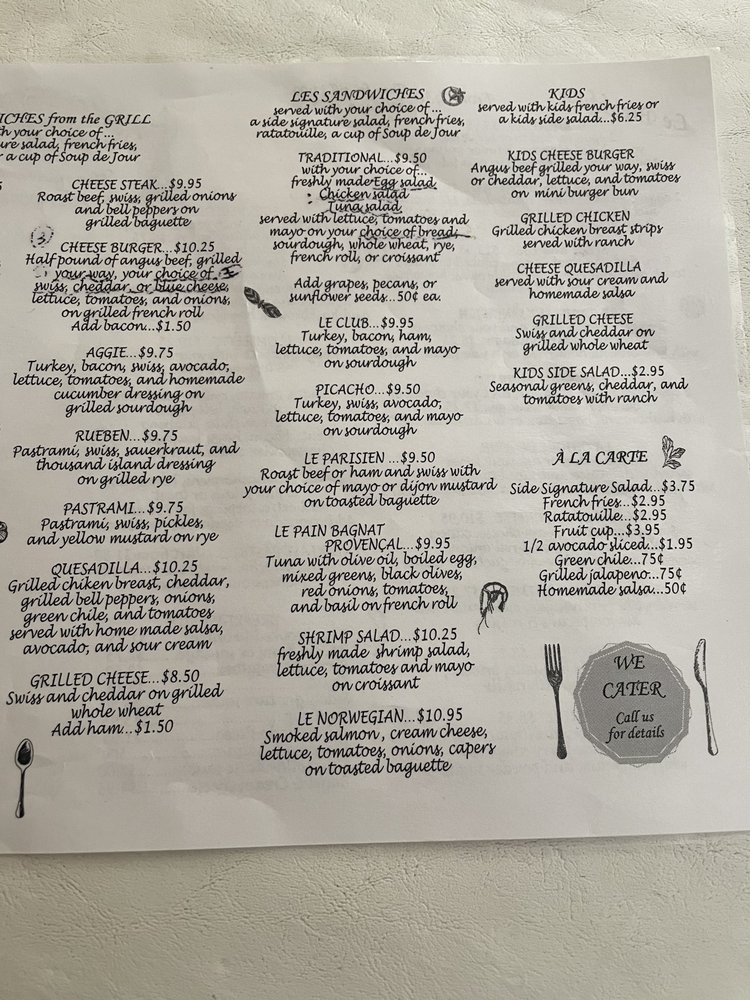 ICHES from the GRILL
h your choice of...
ure salad, french fries,
r a cup of Soup de Jour
CHEESE STEAK...$9.95
Roast beef, swiss, grilled onions
and bell peppers on
grilled baguette
CHEESE BURGER...$10.25
Half pound of angus beef, grilled
your way, your choice of
swiss, cheddar, or blue cheese,
lettuce, tomatoes, and onions,
on grilled french roll
Add bacon...$1.50
AGGIE...$9.75
Turkey, bacon, swiss, avocado,
lettuce, tomatoes, and homemade
cucumber dressing on
grilled sourdough
RUEBEN...$9.75
Pastrami, swiss, sauerkraut, and
thousand island dressing
on grilled rye
PASTRAMI...$9.75
Pastrami, swiss, pickles,
and yellow mustard on rye
QUESADILLA...$10.25
Grilled chiken breast, cheddar,
grilled bell peppers, onions,
green chile, and tomatoes
served with home made salsa,
avocado, and sour cream
GRILLED CHEESE...$8.50
Swiss and cheddar on grilled
whole wheat
Add ham...$1.50
LES SANDWICHES
served with your choice of...
a side signature salad, french fries,
ratatouille, a cup of Soup de Jour
TRADITIONAL...$9.50
with your choice of...
freshly made Egg salad,
Chicken salad
Tuna salad
served with lettuce, tomatoes and
mayo on your choice of bread;
sourdough, whole wheat, rye,
french roll, or croissant
Add grapes, pecans, or
sunflower seeds...50¢ ea.
LE CLUB...$9.95
Turkey, bacon, ham,
lettuce, tomatoes, and mayo
on sourdough
PICACHO...$9.50
Turkey, swiss, avocado,
lettuce, tomatoes, and mayo
on sourdough
LE PARISIEN ...$9.50
Roast beef or ham and swiss with
your choice of mayo or dijon mustard
on toasted baguette
LE PAIN BAGNAT
PROVENÇAL...$9.95
Tuna with olive oil, boiled egg,
mixed greens, black olives,
red onions, tomatoes,
and basil on french roll
SHRIMP SALAD...$10.25
freshly made shrimp salad,
lettuce, tomatoes and mayo
on croissant
LE NORWEGIAN...$10.95
Smoked salmon, cream cheese,
lettuce, tomatoes, onions, capers
on toasted baguette
KIDS
served with kids french fries or
a kids side salad...$6.25
KIDS CHEESE BURGER
Angus beef grilled your way, swiss
or cheddar, lettuce, and tomatoes
on mini burger bun
GRILLED CHICKEN
Grilled chicken breast strips
served with ranch
CHEESE QUESADILLA
served with sour cream and
homemade salsa
GRILLED CHEESE
Swiss and cheddar on
grilled whole wheat
KIDS SIDE SALAD...$2.95
Seasonal greens, cheddar, and
tomatoes with ranch
À LA CARTE
Side Signature Salad...$3.75
French fries...$2.95
Ratatouille...$2.95
Fruit cup...$3.95
1/2 avocado sliced...$1.95
Green chile...75¢
Grilled jalapeno...75¢
Homemade salsa...50¢
WE
CATER
Call us
for details